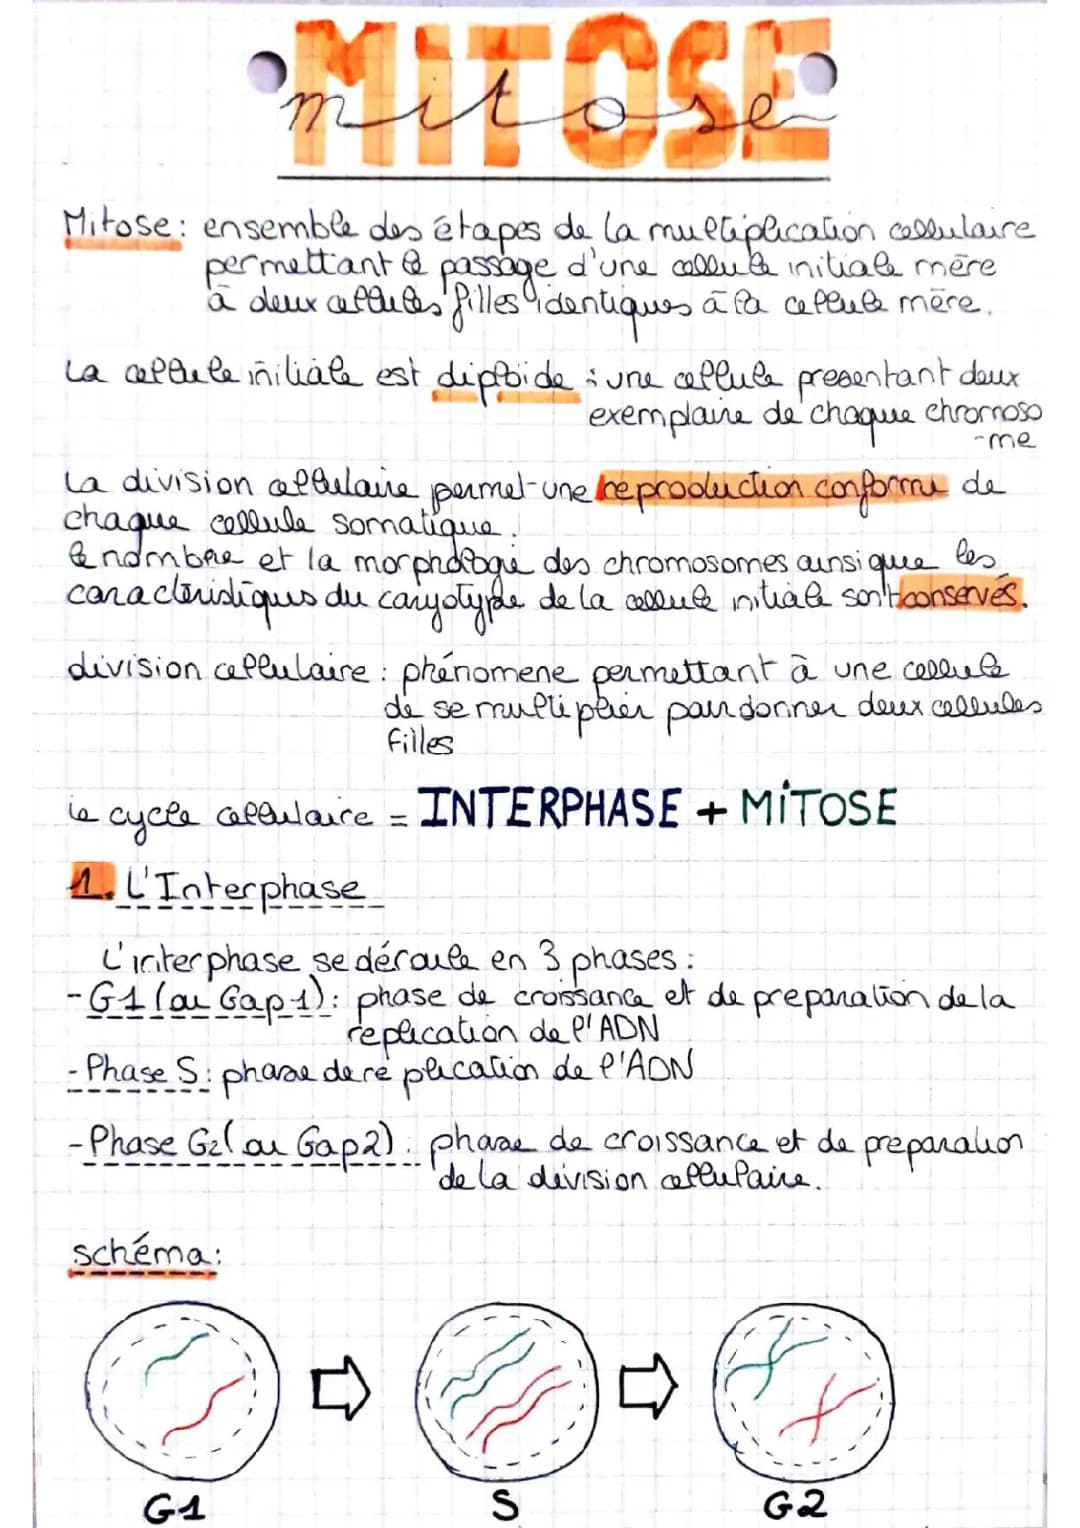 MITOSE
mitose
Mitose : ensemble des étapes de la multiplication cellulaire
permettant le passage d'une cellule initiale mère
à deux cellules filles identiques à la cellule mère.
La cellule initiale est diploide : une cellule presentant deux
exemplaire de chaque chromoso
-me
La division cellulaire permet une reproduction conforme de
chaque cellule somatique.
le nombre et la morphologie des chromosomes ainsi que les
caractéristiques du caryotype de la cellule initiale sont conservés.
division cellulaire : phénomene permettant à une cellule
de se multiplier pour donner deux cellules
filles
le cycle cellulaire = INTERPHASE + MITOSE
1. L'Interphase
L'interphase se déroule en 3 phases :
- G1 (ou Gap 1) : phase de croissance et de preparation de la
replication de l'ADN
- Phase S : phase de réplication de l'ADN
- Phase G2 (ou Gap2) : phase de croissance et de préparation
de la division cellulaire.
schéma :
G1 S G2